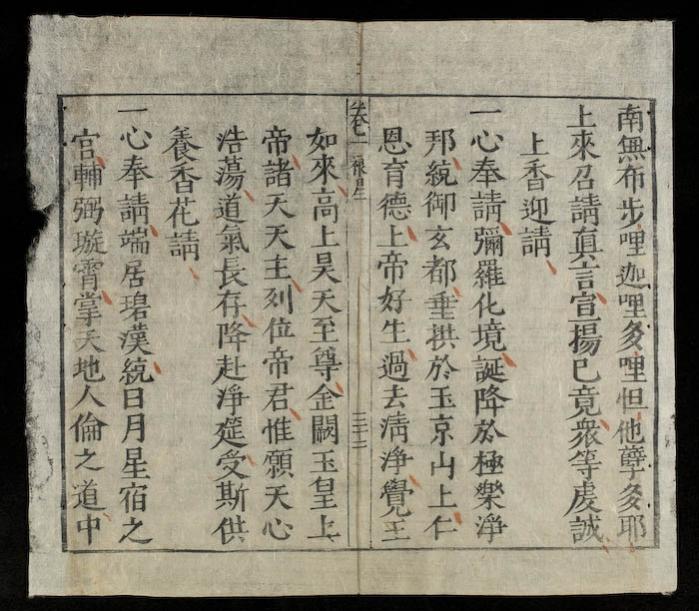 南無布步哩迦哩多哩怛他孽多耶
上來召請真言宣揚已竟衆等虔誠
上香迎請
一心奉請彌羅化境誕降於極樂淨
邦統御玄都垂拱於玉京山上仁
恩育德上帝好生過去清淨覺王
卷一
三十三
如來高上昊天至尊金闕玉皇上
帝諸天天主列位帝君惟願天心
浩蕩道氣長存降赴淨筵受斯供
養香花請
一心奉請端居碧漢統日月星宿之
官輔弼璇霄掌天地人倫之道中